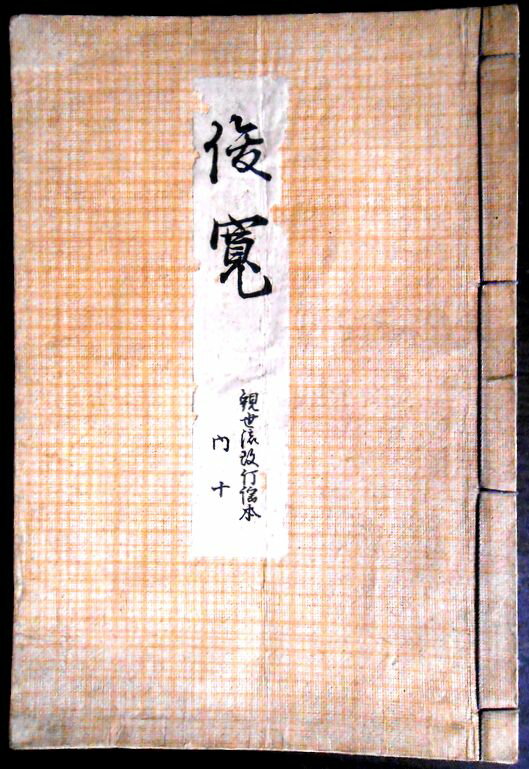 俊寛
観世流改行謡本
内十